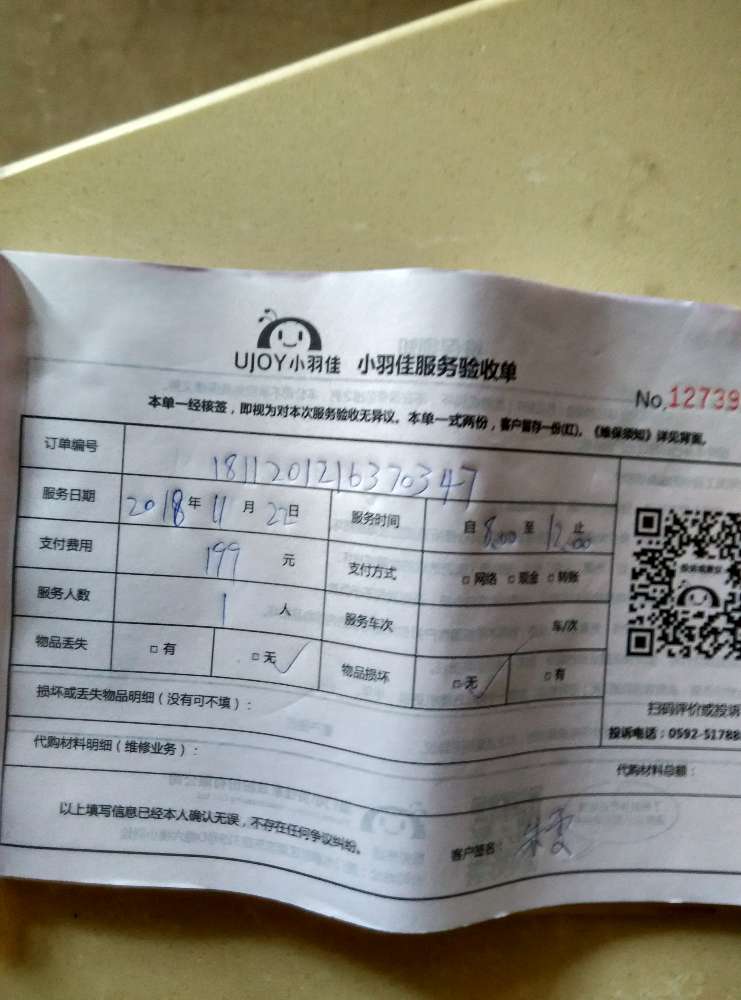 UJOY小羽佳 小羽佳服务验收单
No.12739
本单一经核签，即视为对本次服务验收无异议。本单一式两份，客户留存一份(红)。《维保须知》详见背面。
订单编号 1811201216370347
服务日期 2018年11月22日 服务时间 自8:00至12:00止
支付费用 199 元 支付方式 □网络 □现金 □转账
服务人数 1 人 服务车次 车/次
物品丢失 □有 □无✓ 物品损坏 □无✓ □有
损坏或丢失物品明细（没有可不填）：
扫码评价或投诉
投诉电话：0592-51788
代购材料明细（维修业务）：
代购材料总额：
以上填写信息已经本人确认无误，不存在任何争议纠纷。
客户签名：